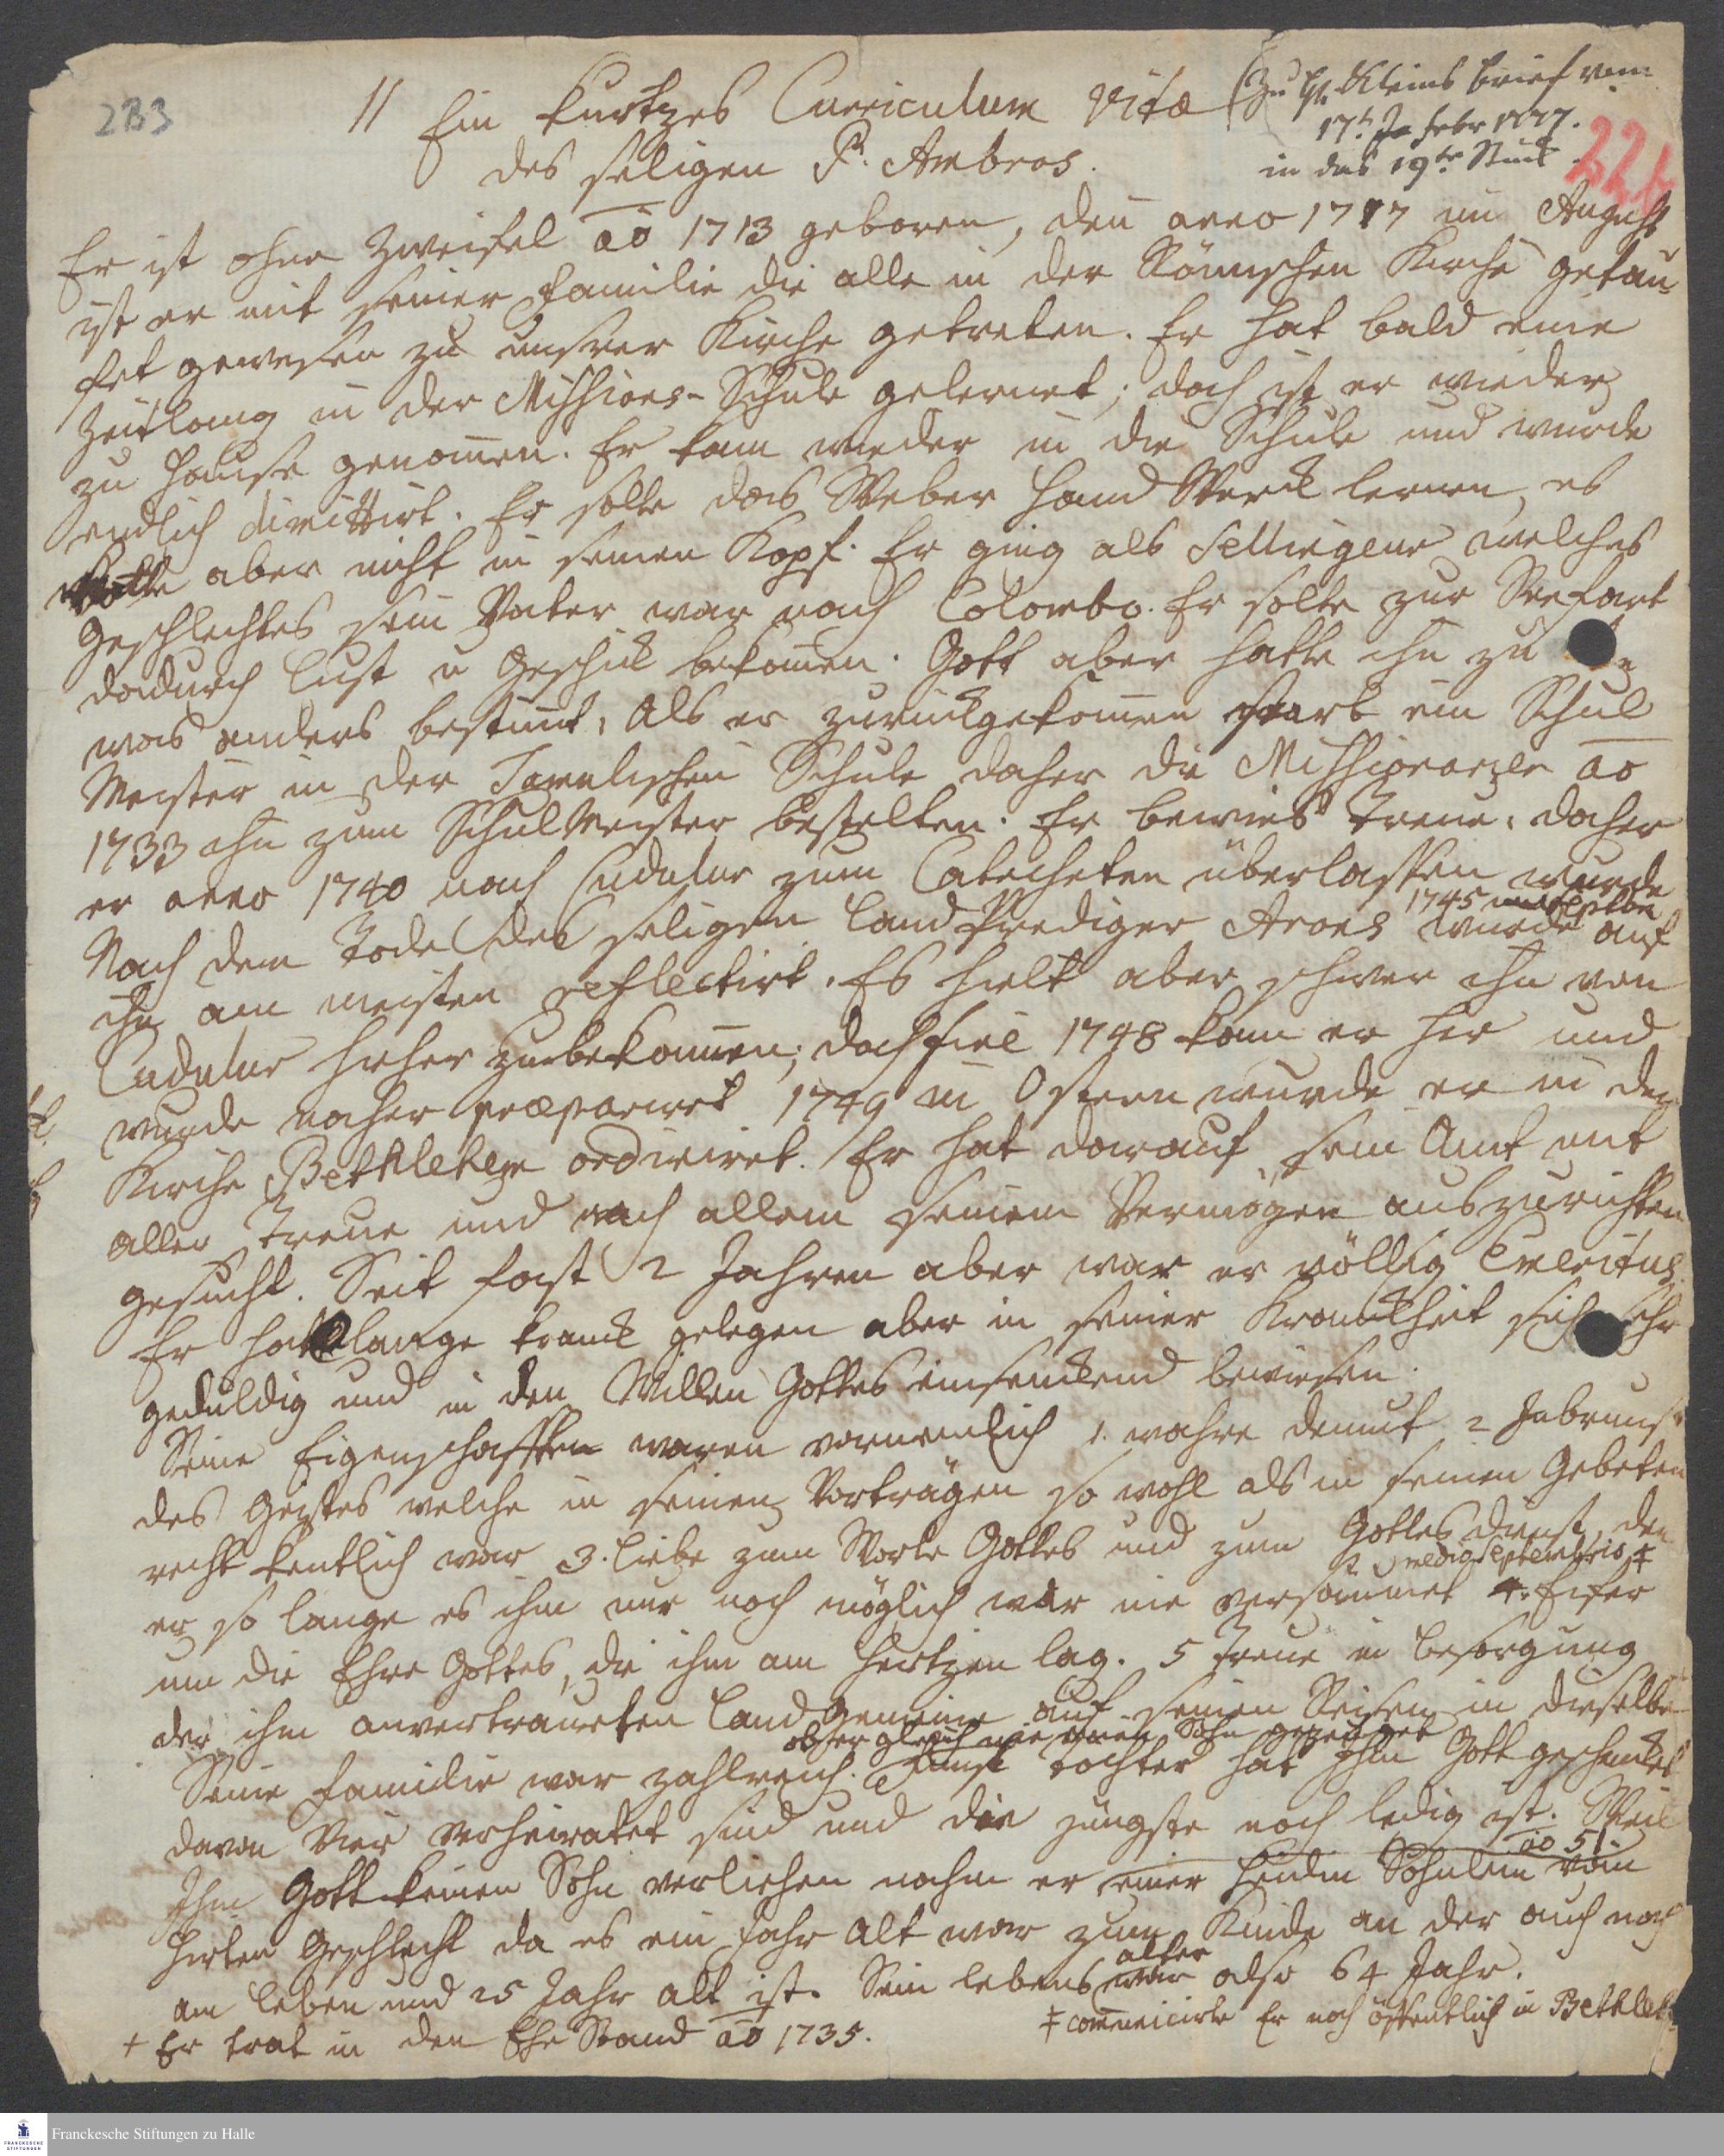 233
11 Ein kurtzes Curriculum Vitæ
des seligen P. Ambros.
Zu H. Kleins brief vom
17t. Febr 1777.
in das 19te Stück
Er ist ohne Zweifel ao 1713 geboren, den anno 1717 im August
ist er mit seiner Familie die alle in der Römischen Kirche getau-
fet gewesen zu unsrer Kirche getreten. Er hat bald eine
Zeitlang in der Missions-Schule gelernet, doch ist er wieder
zu Hause genommen. Er kam wieder in die Schule und wurde
endlich dimittirt. Er solte das Weber Hand Werck lernen, es
wolte aber nicht in seinen Kopf. Er ging als welches
Geschlechtes sein Vater war nach Colombo. Er solte zur Seefart
dadurch lust u Geschick bekommen. Gott aber hatte ihn zu
was anders bestimt, Als er zurückgekommen starb ein Schul
Meister in der Tamulischen Schule daher die Missionarien ao
1733 ihn zum SchulMeister bestelten. Er bewies Treue, daher
er anno 1740 nach Cudulur zum Catecheten überlassen wurde
Nach dem Tode des seligen Land Prediger Arons 1745 wurde auf
ihn am meisten reflectirt. Es hielt aber schwer ihn von
Cudulur hieher zu bekommen, doch 1748 kam er her und
wurde naher præparirt 1749 in Ostern wurde er in der
Kirche Bethlehem ordinirt. Er hat darauf sein Amt mit
aller Treue und nach allem seinem Vermögen auszurichten
gesucht. Seit fast 2 Jahren aber war er völlig Emeritus.
Er hat lange kranck gelegen aber in seiner Kranckheit sich sehr
geduldig und in den Willen Gottes einsenckend bewiesen.
Seine Eigenschafften waren vornemlich 1. wahre demut 2 Inbrunst
des Geistes welche in seinen Vorträgen so wohl als in seinen Gebeten
recht kentlich war 3. liebe zum Worte Gottes und zum Gottes dienst, den
er so lange es ihm nur noch möglich war nie versäumet 4. Eifer
um die Ehre Gottes, die ihm am Hertzen lag. 5 Treue in besorgung
der ihm anvertraueten Land Gemeine auf seinen Reisen in dieselbe
ob er gleich nie einen Sohn gezeuget
Seine Familie war zahlreich. Fünf töchter hat Ihm Gott geschenckt
davon Vier verheiratet sind und die jüngste noch ledig ist. Weil
Ihm Gott keinen Sohn verliehen nahm er einer Heidin Söhnlein ao 51. vom
Hirten Geschlecht da es ein Jahr alt war zum Kinde an der auch noch
am leben und 25 Jahr alt ist. Sein lebens alter war also 64 Jahr.
+ Er trat in den Ehe Stand ao 1735.
‡ communicirte Er noch öffentlich in Bethleh.
Franckesche Stiftungen zu Halle
FRANCKESCHE
STIFTUNGEN